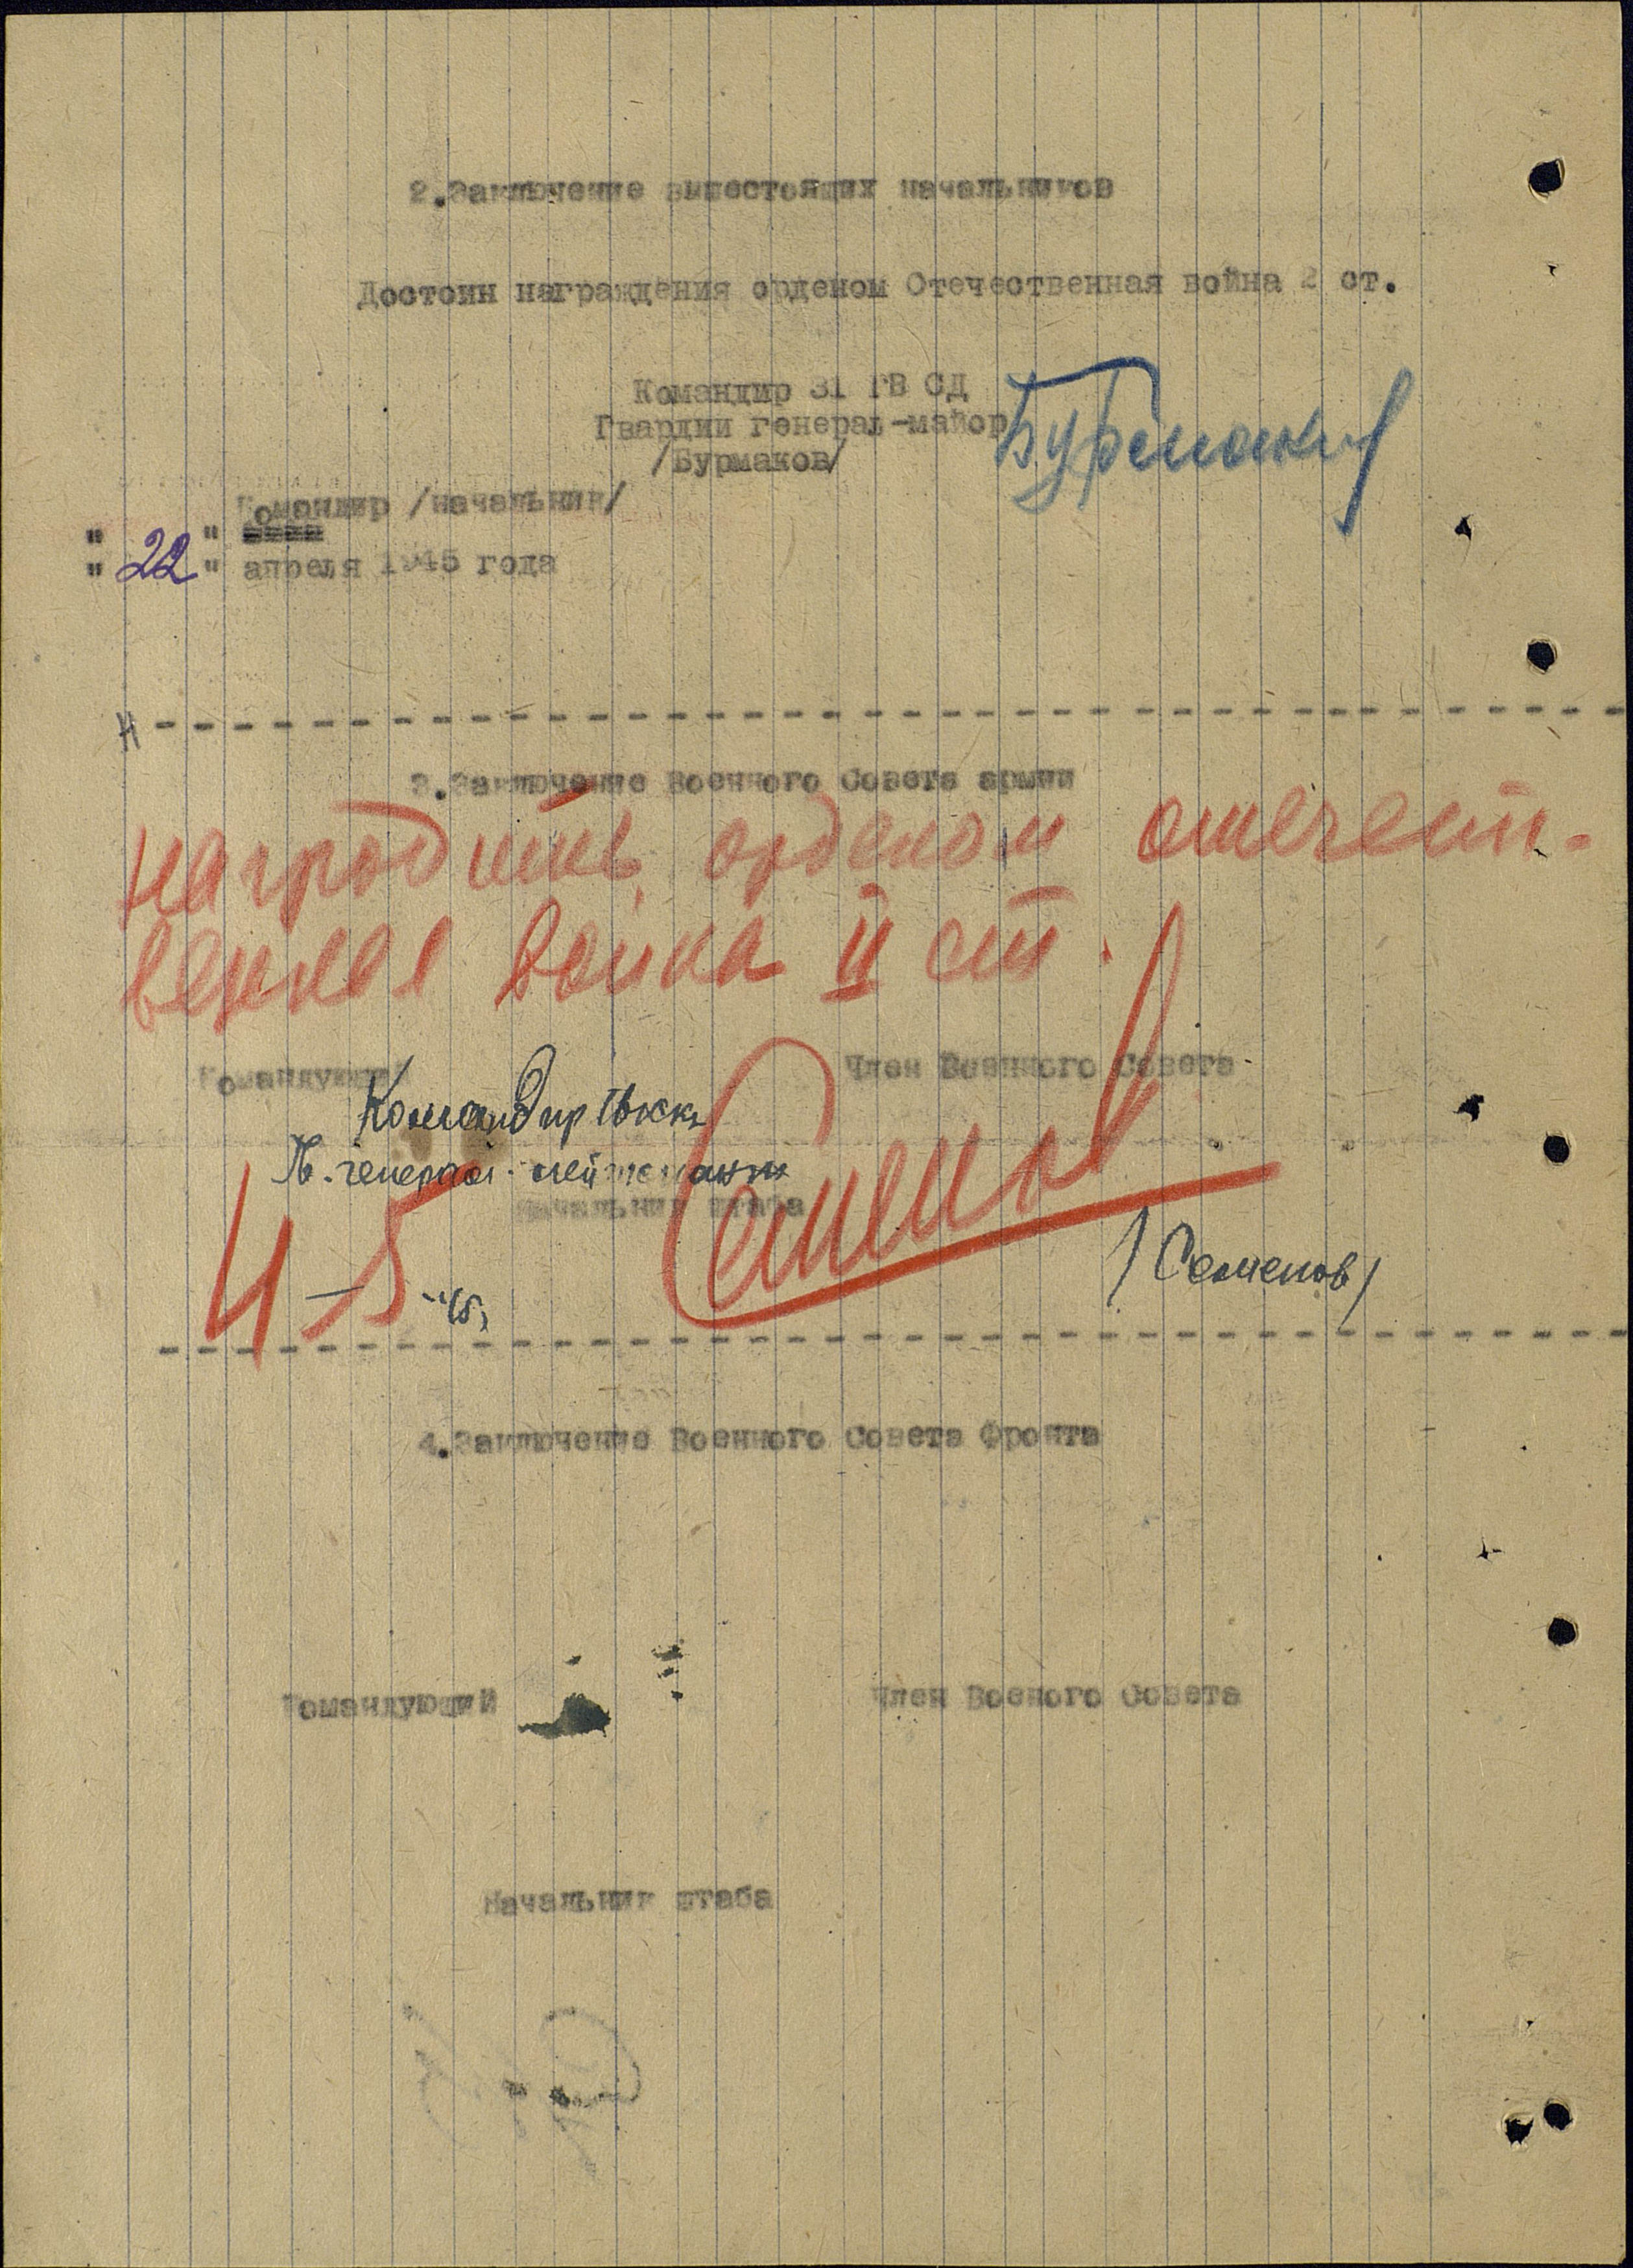 2.Заключение вышестоящих начальников
Достоин награждения орденом Отечественная война 2 ст.
Командир 31 ГВ СД
Гвардии генерал-майор
/Бурмаков/
Бурмаков
Командир /начальник/
" "
" 22 " апреля 1945 года
3.Заключение Военного Совета армии
наградить орденом отечест-
венная война II ст.
Командующий
Член Военного Совета
Командир
Гв. генерал-лейтенант
Начальник штаба
Семенов
4-5-45
/Семенов/
4.Заключение Военного Совета Фронта
Командующий
Член Военого Совета
Начальник штаба